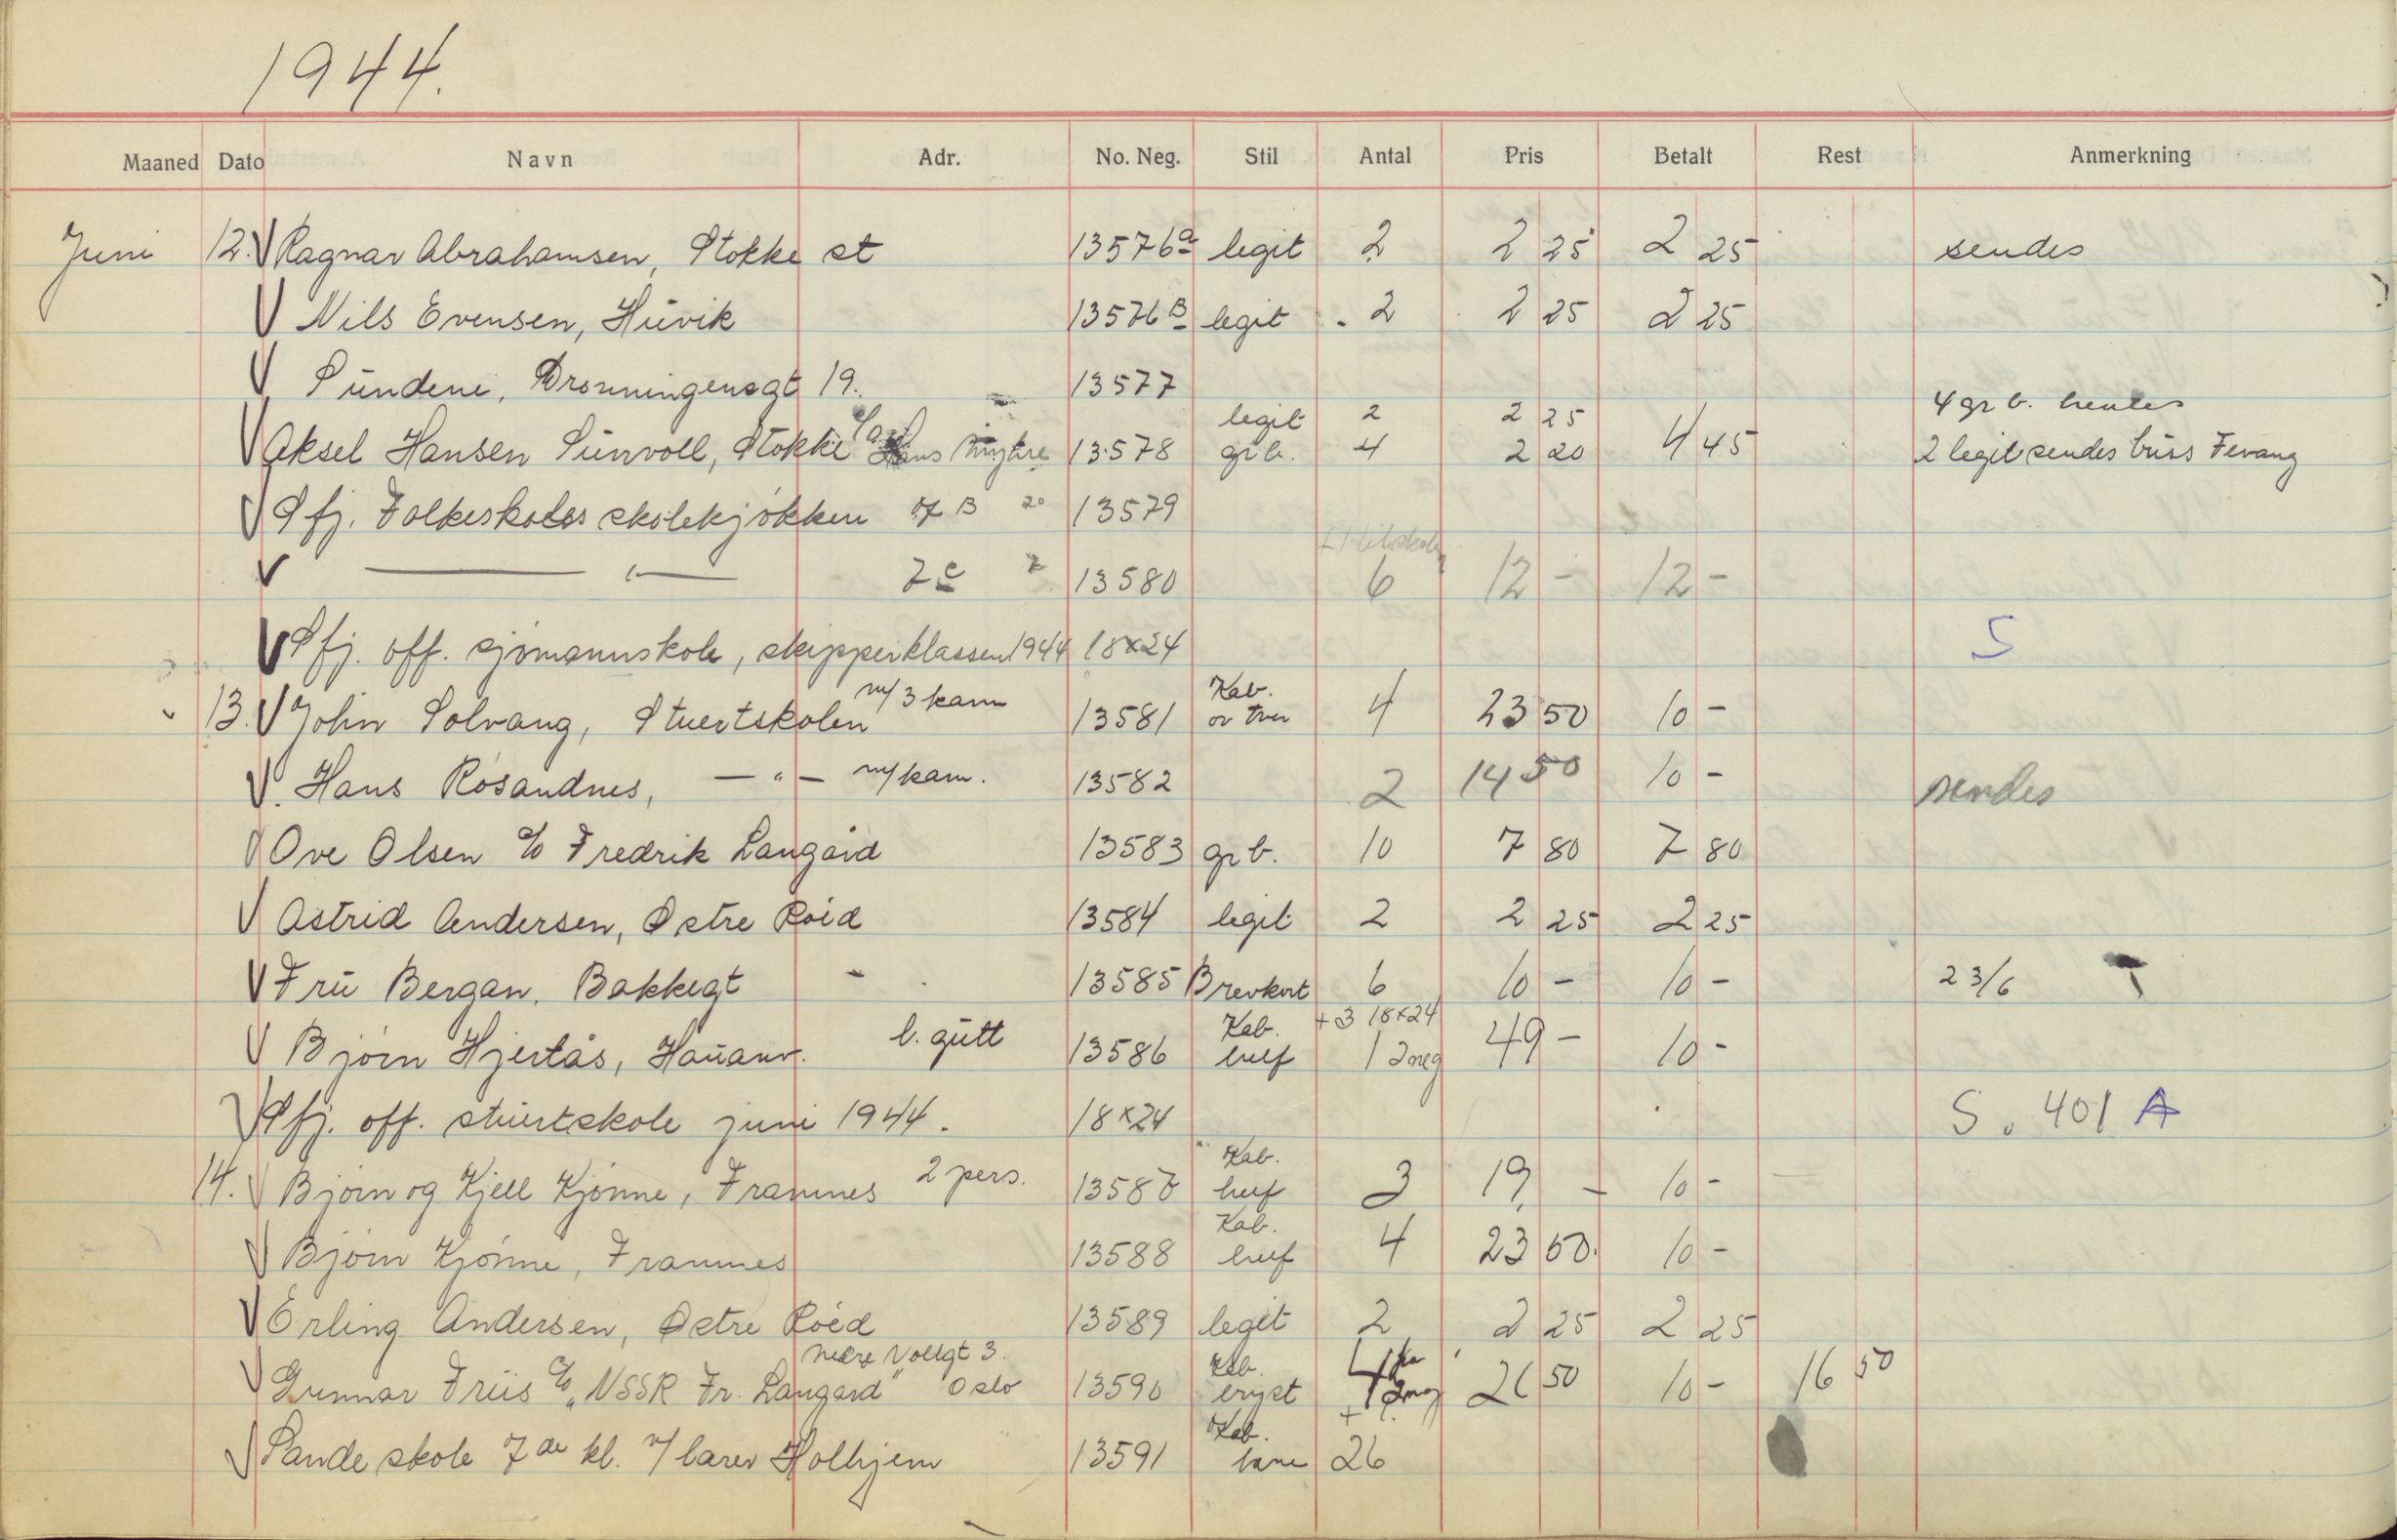 1944.
Maaned Dato Navn Adr. No. Neg. Stil Antal Pris Betalt Rest Anmerkning
Juni 12. Ragnar Abrahamsen, Stokke st 13576a legit 2 2 25 2 25 sendes
Nils Evensen, Huvik 13576B legit 2 2 25 2 25
Sundene, Dronningensgt 19. 13577
legit 2 2 25 4 gr b. hentes
Aksel Hansen Sunvoll, Stokke 13578 gr b. 4 2 20 4 45 2 legit sendes buss Fevang
Sfj. Folkeskoles skolekjøkken 7 B 20 13579
— " — 7c 13580 6 12 - 12 -
Sfj. off. sjømannskole, skipperklassen 1944 18x24 S
m/3 kam Kab.
13. John Solvang, Stuertskolen 13581 ov tver 4 23 50 10 -
Hans Rosandnes, — " — m/kam. 13582 2 14 50 10 - sendes
Ove Olsen c/o Fredrik Langård 13583 gr b. 10 7 80 7 80
Astrid Andersen, Østre Röed 13584 legit 2 2 25 2 25
Fru Bergan, Bakkegt 13585 Brevkort 6 10 - 10 - 23/6 T
l. gutt Kab. + 3 18x24
Bjørn Hjertås, Hauanv. 13586 huf 1 2neg 49 - 10 -
Sfj. off. stuertskole juni 1944. 18x24 S. 401 A
Kab.
14. Bjørn og Kjell Kjønne, Framnes 2 pers. 13587 huf 3 19, - 10 -
Kab.
Bjørn Kjønne, Framnes 13588 huf 4 23 50 10 -
Erling Andersen, Østre Röed 13589 legit 2 2 25 2 25
nedre Vollgt 3. Kab.
Gunnar Friis c/o "NSSR Fr. Langård" Oslo 13590 bryst 26 50 10 - 16 50
Kab.
Sande skole 7de kl. v/ lærer Holhjem 13591 26